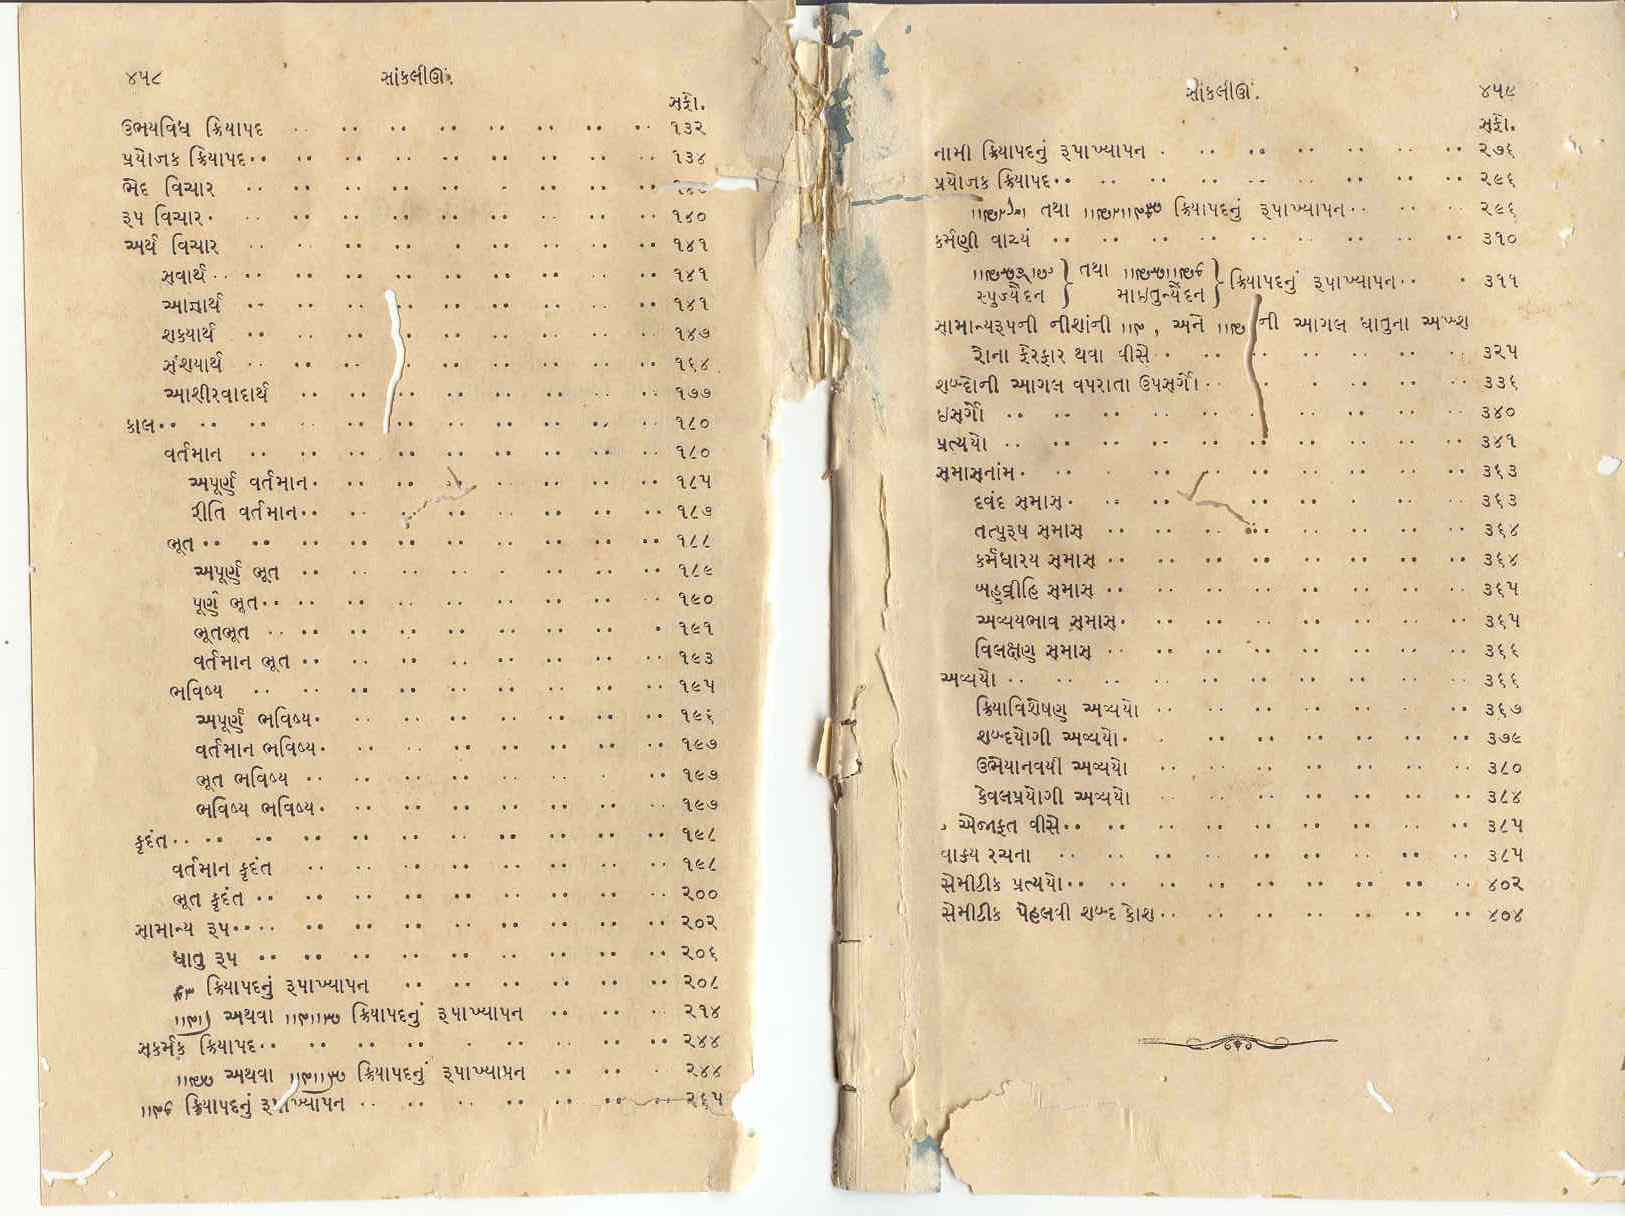 ૪૫૮ સાંકલીઊં.
સફો.
ઉભયવિધ ક્રિયાપદ .. .. .. .. .. .. .. .. ૧૩૨
પ્રયોજક ક્રિયાપદ.. .. .. .. .. .. .. .. .. ૧૩૪
ભેદ વિચાર .. .. .. .. .. .. .. .. ..
રૂપ વિચાર. .. .. .. .. .. .. .. .. ૧૪૦
અર્થ વિચાર .. .. .. .. .. .. .. .. .. ૧૪૧
સ્વાર્થ.. .. .. .. .. .. .. .. .. ૧૪૧
આજ્ઞાર્થ .. .. .. .. .. .. .. .. .. ૧૪૧
શકયાર્થ .. .. .. .. .. .. .. .. ૧૪૭
સંશયાર્થ .. .. .. .. .. .. .. .. ૧૬૪
આશીરવાદાર્થ .. .. .. .. .. .. .. .. ૧૭૭
કાલ.. .. .. .. .. .. .. .. .. .. .. ૧૮૦
વર્તમાન .. .. .. .. .. .. .. .. .. ૧૮૦
અપૂર્ણ વર્તમાન. .. .. .. .. .. .. .. ૧૮૫
રીતિ વર્તમાન.. .. .. .. .. .. .. ૧૮૭
ભૂત.. .. .. .. .. .. .. .. .. .. ૧૮૮
અપૂર્ણ ભૂત .. .. .. . .. .. .. .. ૧૮૯
પૂર્ણ ભૂત.. .. .. .. .. .. .. .. .. ૧૯૦
ભૂતભૂત .. .. .. .. .. .. .. .. . ૧૯૧
વર્તમાન ભૂત .. .. .. .. .. .. .. .. ૧૯૩
ભવિષ્ય .. .. .. .. .. .. .. .. .. ૧૯૫
અપૂર્ણ ભવિષ્ય. .. .. .. .. .. .. .. ૧૯૬
વર્તમાન ભવિષ્ય. .. .. .. .. .. .. .. ૧૯૭
ભૂત ભવિષ્ય .. .. .. .. .. . .. ૧૯૭
ભવિષ્ય ભવિષ્ય. .. .. .. .. .. .. .. ૧૯૭
કૃદંત.. .. .. .. .. .. .. .. .. .. .. ૧૯૮
વર્તમાન કૃદંત .. .. .. .. .. .. .. .. ૧૯૮
ભૂત કૃદંત .. .. .. .. .. .. .. .. .. ૨૦૦
સામાન્ય રૂપ.... .. .. .. .. .. .. .. .. ૨૦૨
ધાતુ રૂપ .. .. .. .. .. .. .. .. .. ૨૦૬
ક્રિયાપદનું રૂપાખ્યાપન .. .. .. .. .. .. ૨૦૮
અથવા ક્રિયાપદનું રૂપાખ્યાપન .. .. . ૨૧૪
સકર્મક ક્રિયાપદ.. .. .. .. . .. .. .. .. ૨૪૪
અથવા ક્રિયાપદનું રૂપાખ્યાપન .. .. . ૨૪૪
ક્રિયાપદનું રૂપાખ્યાપન .. .. .. .. .. .. .. ૨૬૫
સાંકલીઊં. ૪૫૯
સફો.
નામી ક્રિયાપદનું રૂપાખ્યાપન . .. .. .. .. .. .. ૨૭૬
પ્રયોજક ક્રિયાપદ.. .. .. .. .. .. .. .. .. ૨૯૬
તથા ક્રિયાપદનું રૂપાખ્યાપન.. .. . ૨૯૬
કર્મણી વાચ્ય .. .. .. .. .. .. .. .. .. ૩૧૦
તથા
સ્પુજ્યૈદન માઇતુન્યૈદન ક્રિયાપદનું રૂપાખ્યાપન.. . ૩૧૧
સામાન્યરૂપની નીશાંની , અને ની આગલ ધાતુના અખ્શ
રોના ફેરફાર થવા વીસે.. .. .. .. .. .. . ૩૨૫
શબ્દોની આગલ વપરાતા ઉપસર્ગો.. . .. .. .. .. ૩૩૬
ઇસર્ગો .. .. .. .. .. .. .. .. .. .. ૩૪૦
પ્રત્યયો .. .. .. .. .. .. .. .. .. .. ૩૪૧
સમાસનાંમ. .. . .. .. .. .. .. .. ૩૬૩
દવંદ સમાસ. .. .. .. .. . .. .. ૩૬૩
તત્પુરૂષ સમાસ .. .. .. .. .. .. .. .. ૩૬૪
કર્મધારય સમાસ .. .. .. .. .. .. .. .. ૩૬૪
બહુવ્રીહિ સમાસ .. .. .. .. .. .. .. .. ૩૬૫
અવ્યયભાવ સમાસ. .. .. .. .. .. .. .. ૩૬૫
વિલક્ષણ સમાસ .. .. .. .. .. .. .. .. ૩૬૬
અવ્યયો .. .. .. .. .. .. .. .. .. .. ૩૬૬
ક્રિયાવિશેષણ અવ્યયો .. .. .. .. .. .. .. ૩૬૭
શબ્દયોગી અવ્યયો. . .. .. .. .. .. .. ૩૭૯
ઉભેયાનવયી અવ્યયો .. .. .. .. .. .. .. ૩૮૦
કેવલપ્રયોગી અવ્યયો .. .. .. .. .. .. .. ૩૮૪
એજાફત વીસે.. .. .. .. .. .. .. .. .. ૩૮૫
વાક્ય રચના .. .. .. .. .. .. .. .. .. ૩૮૫
સેમીટીક પ્રત્યયો.. .. .. .. .. .. .. .. .. ૪૦૨
સેમીટીક પેહલવી શબ્દ કોશ.. .. .. .. .. .. .. ૪૦૪